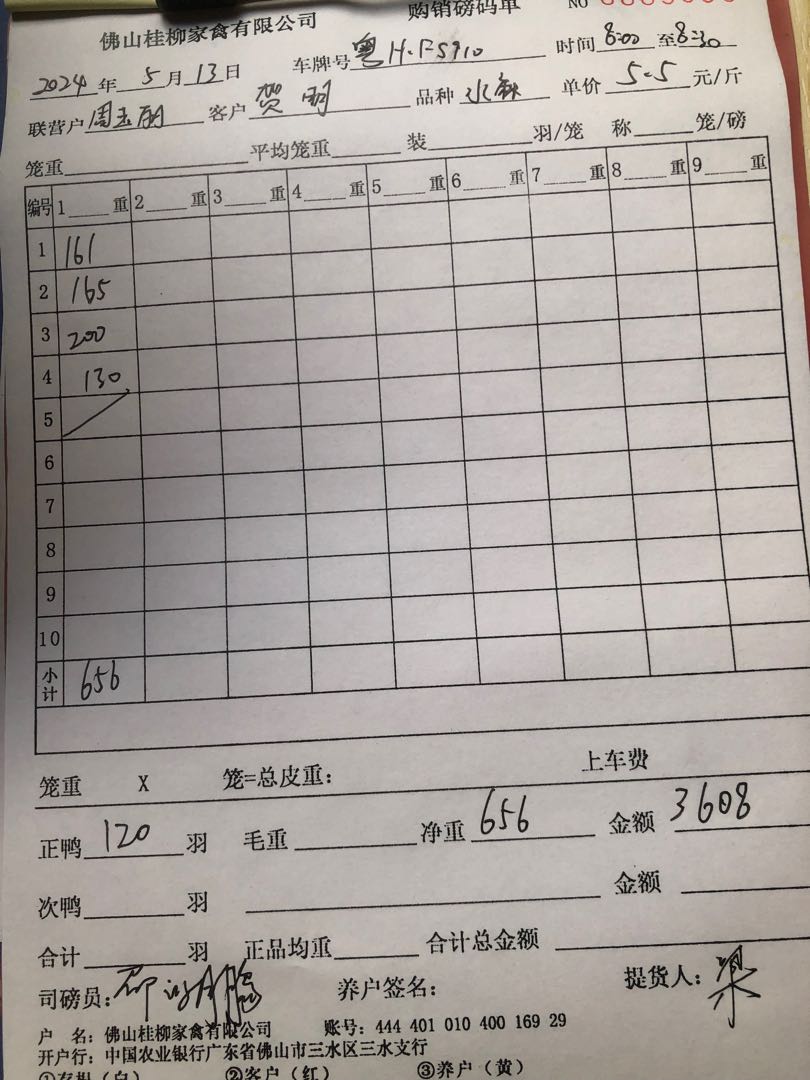 佛山桂柳家禽有限公司 购销磅码单 NO
2024 年 5 月 13 日 车牌号 粤H·F5910 时间 8:00 至 8:30
联营户 周玉朋 客户 贺明 品种 水鸭 单价 5.5 元/斤
笼重 平均笼重 装 羽/笼 称 笼/磅
编号 1 重 2 重 3 重 4 重 5 重 6 重 7 重 8 重 9 重
1 161
2 165
3 200
4 130
5
6
7
8
9
10
小计 656
笼重 X 笼=总皮重: 上车费
正鸭 120 羽 毛重 净重 656 金额 3608
次鸭 羽 金额
合计 羽 正品均重 合计总金额
司磅员: 养户签名: 提货人: 梁
户 名: 佛山桂柳家禽有限公司 账号: 444 401 010 400 169 29
开户行: 中国农业银行广东省佛山市三水区三水支行
①存根(白) ②客户(红) ③养户(黄)